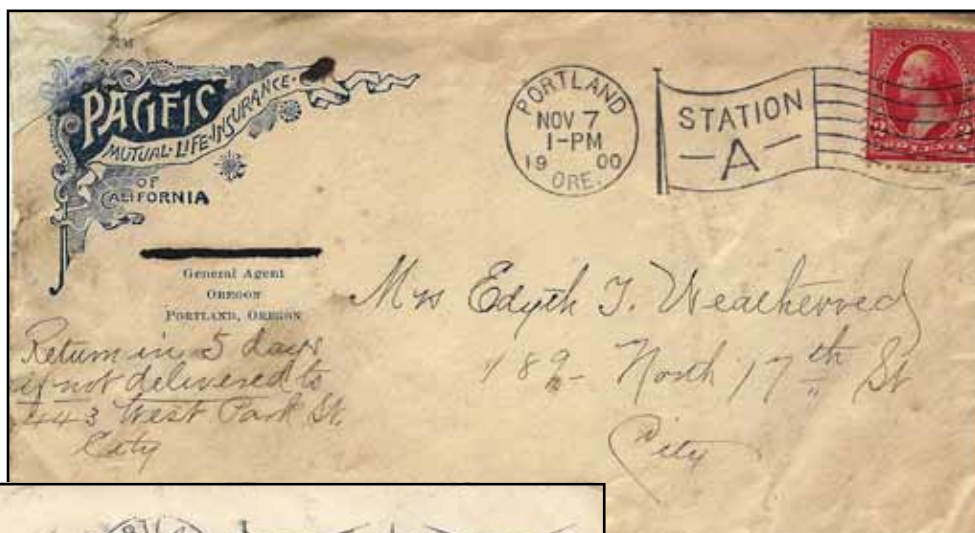 PACIFIC
MUTUAL-LIFE-INSURANCE
OF
CALIFORNIA
General Agent
OREGON
PORTLAND, OREGON
Return in 5 days
if not delivered to
443 West Park St.
City
PORTLAND
NOV 7
1-PM
19 00
ORE.
STATION
-A-
Mrs Edyth T. Weatherred
189 - North 17th St
City